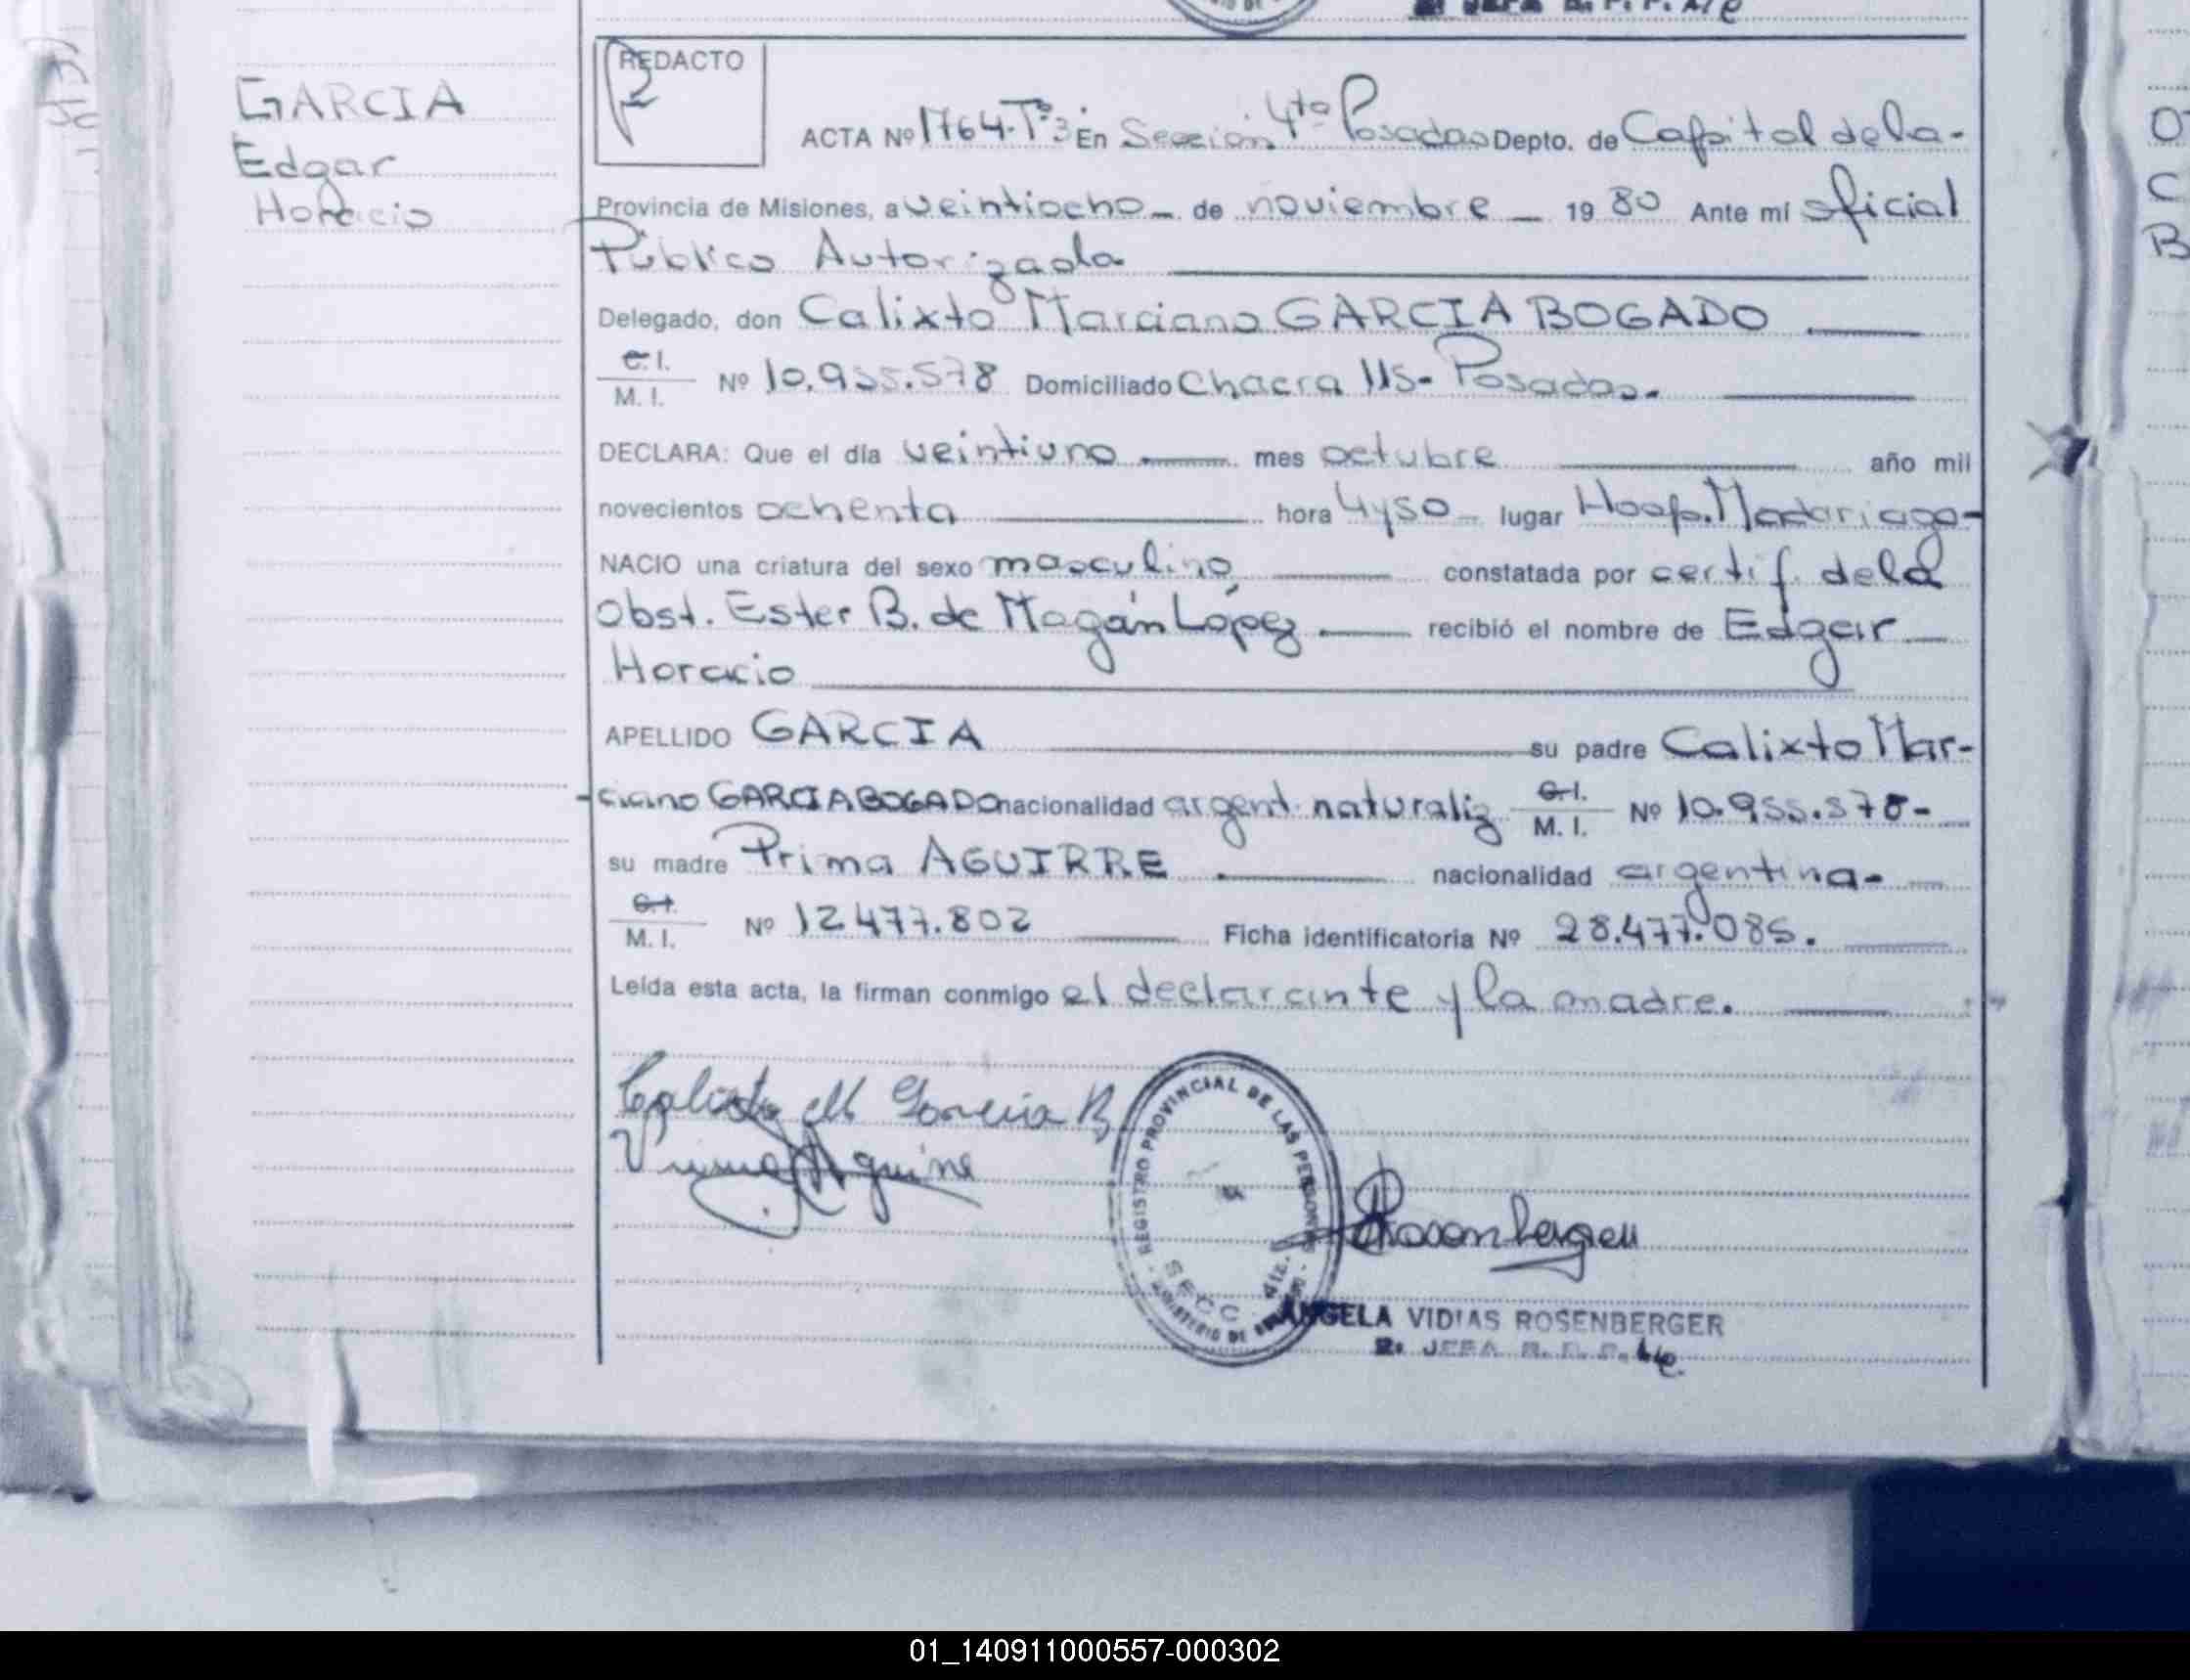 GARCIA
Edgar
Horacio
REDACTO
ACTA Nº 1764-Tº3 En Sección 4ta Posadas Depto. de Capital de la-
Provincia de Misiones, a veintiocho - de noviembre - 19 80 Ante mí oficial
Público Autorizada
Delegado, don Calixto Marciano GARCIA BOGADO
C.I.
M. I. Nº 10.955.578 Domiciliado Chacra 115- Posadas.
DECLARA: Que el día veintiuno mes octubre año mil
novecientos ochenta hora 4y50 lugar Hosp. Madariaga-
NACIO una criatura del sexo masculino constatada por certif. de la
Obst. Ester B. de Magán López recibió el nombre de Edgar
Horacio
APELLIDO GARCIA su padre Calixto Mar-
-ciano GARCIA BOGADO nacionalidad argent. naturaliz C.I.
M. I. Nº 10.955.578-
su madre Prima AGUIRRE nacionalidad argentina-
C.I.
M. I. Nº 12477.802 Ficha identificatoria Nº 28.477.085.
Leída esta acta, la firman conmigo el declarante y la madre.
Calixto M Garcia B
Prima Aguirre
REGISTRO PROVINCIAL DE LAS PERSONAS
SECC. 4ta.
MINISTERIO DE
Rosenberger
ANGELA VIDIAS ROSENBERGER
2. JEFA R. P. P. A/c
01_140911000557-000302